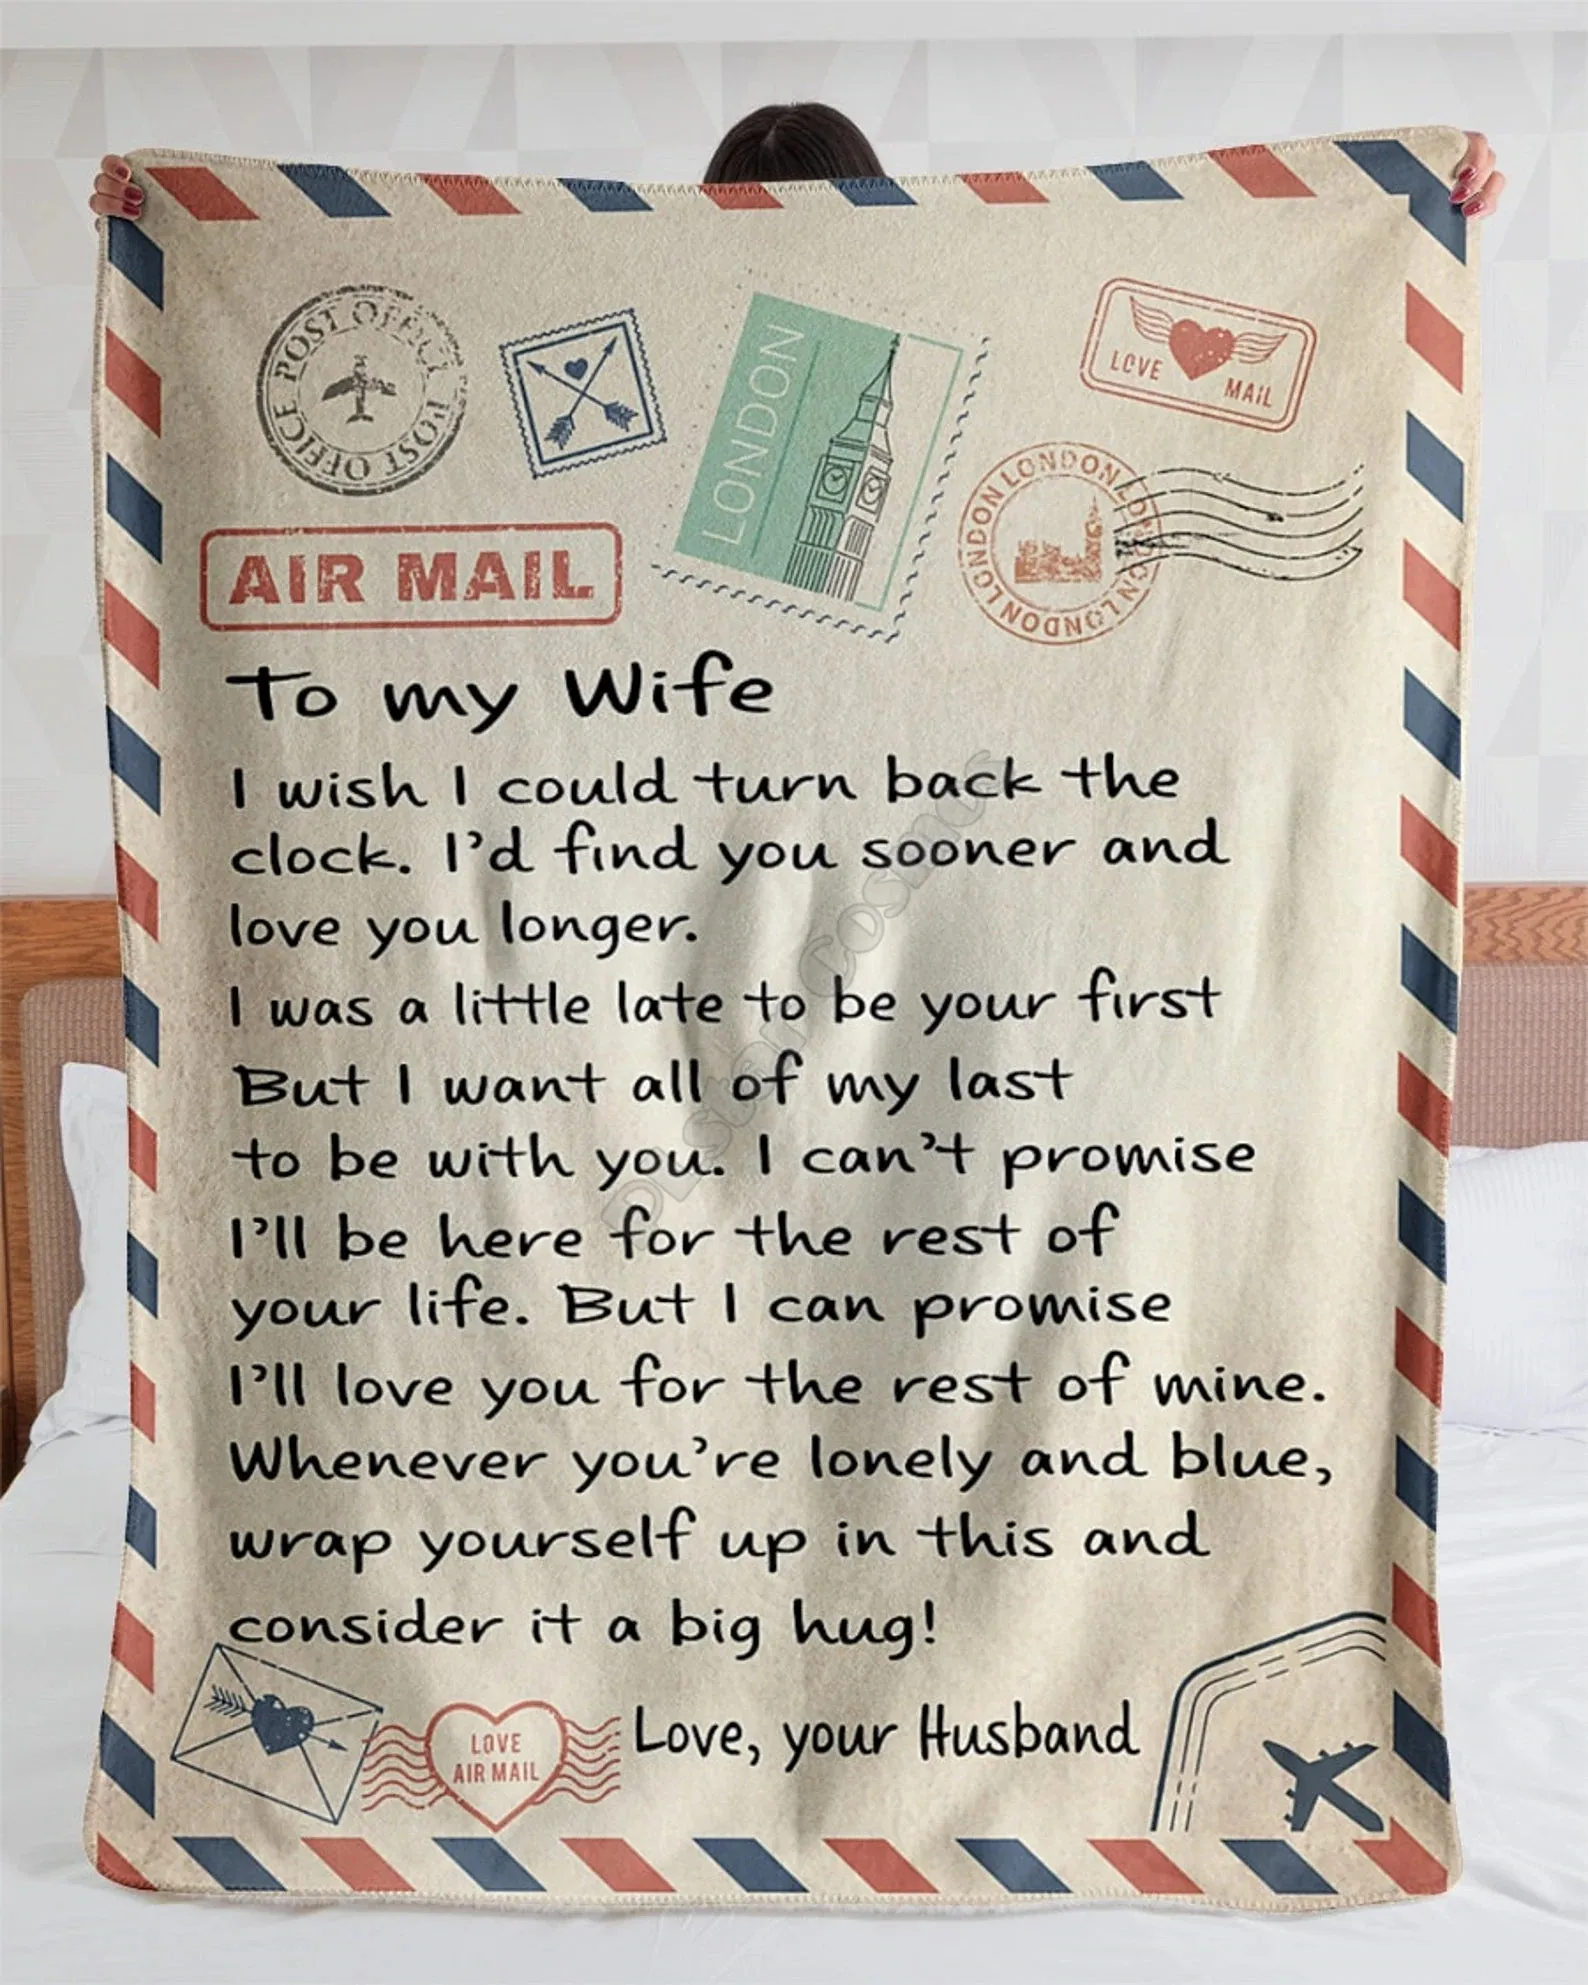 POST OFFICE POST OFFICE
LONDON
LOVE MAIL
LONDON LONDON LONDON LONDON LONDON
AIR MAIL
To my Wife
I wish I could turn back the
clock. I'd find you sooner and
love you longer.
I was a little late to be your first
But I want all of my last
to be with you. I can't promise
I'll be here for the rest of
your life. But I can promise
I'll love you for the rest of mine.
Whenever you're lonely and blue,
wrap yourself up in this and
consider it a big hug!
LOVE
AIR MAIL
Love, your Husband